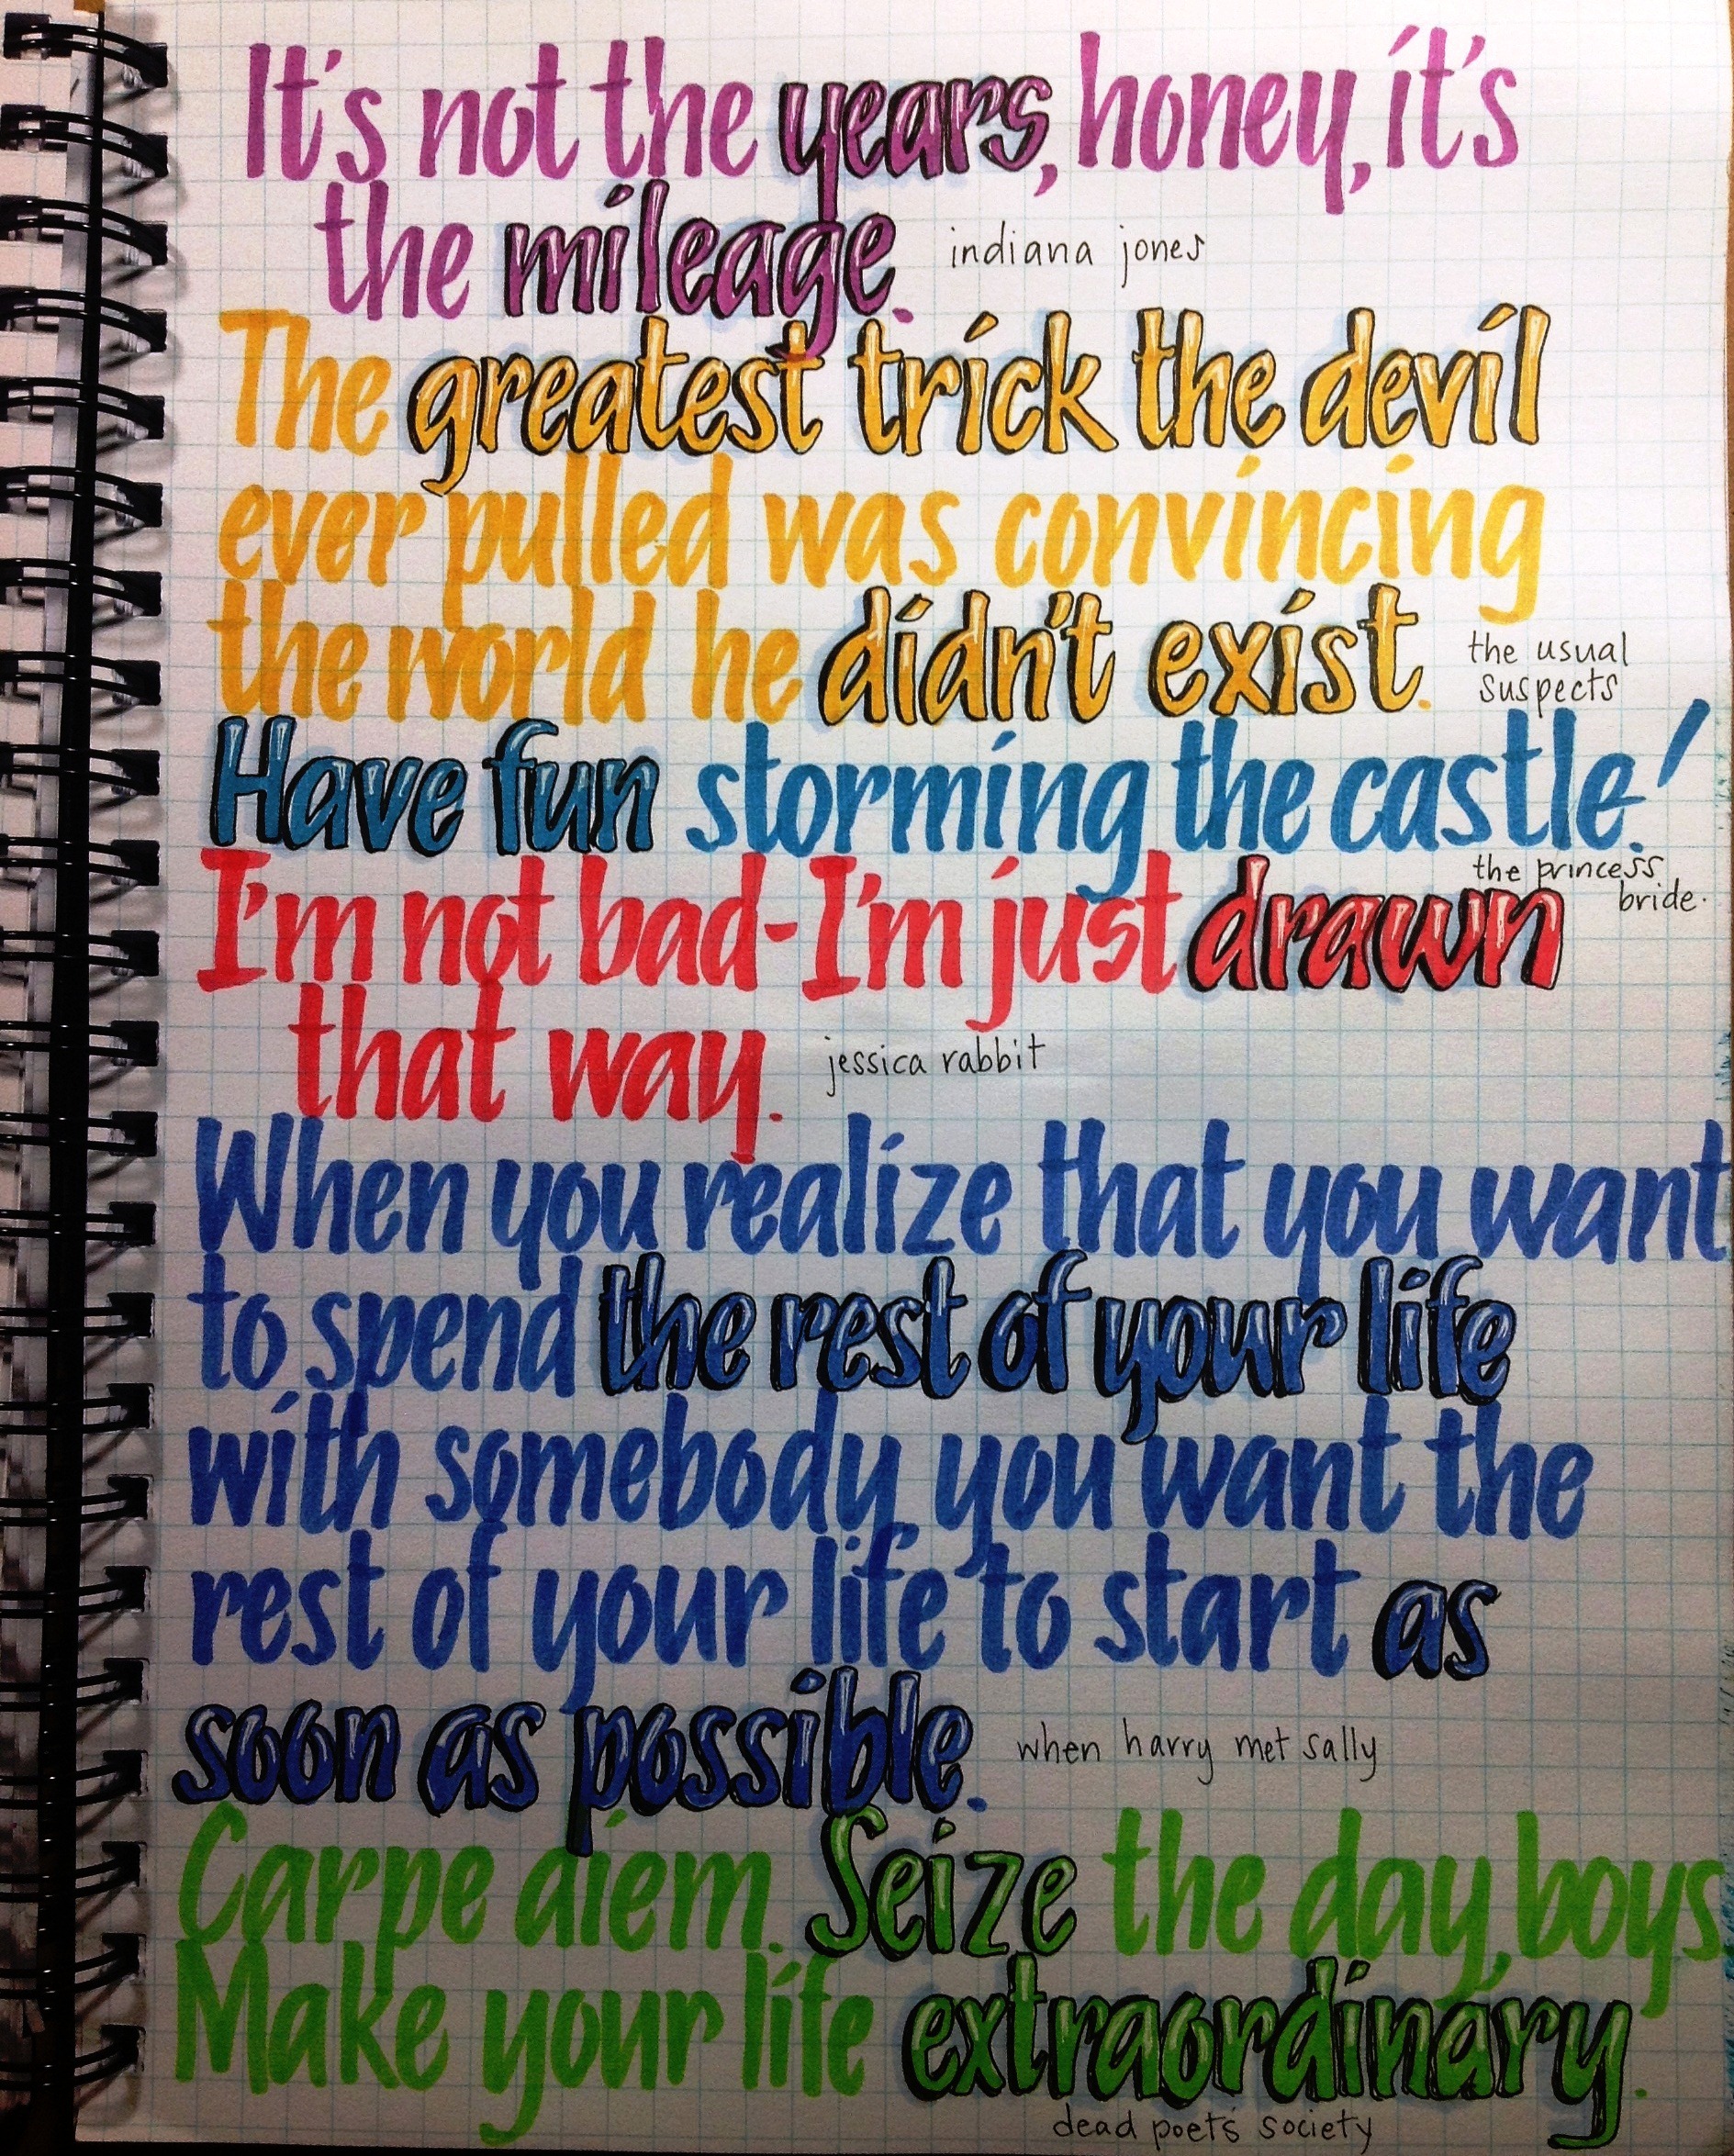 It's not the years, honey, it's
the mileage. indiana jones
The greatest trick the devil
ever pulled was convincing
the world he didn't exist. the usual
suspects
Have fun storming the castle!
the princess
bride.
I'm not bad-I'm just drawn
that way. jessica rabbit
When you realize that you want
to spend the rest of your life
with somebody, you want the
rest of your life to start as
soon as possible. when harry met sally
Carpe diem. Seize the day, boys.
Make your life extraordinary.
dead poets society